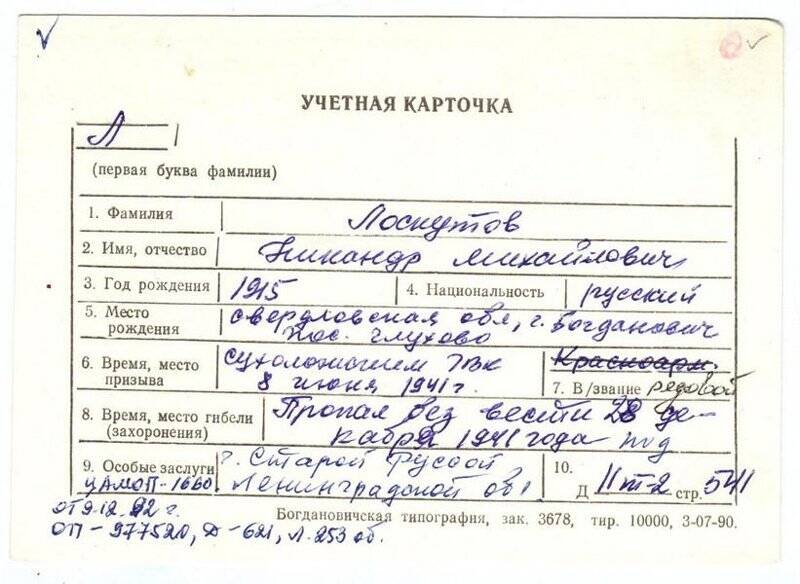 УЧЕТНАЯ КАРТОЧКА
Л
(первая буква фамилии)
1. Фамилия Лоскутов
2. Имя, отчество Никандр Михайлович
3. Год рождения 1915 4. Национальность русский
5. Место рождения свердловская обл, г. Богданович
пос. Глухово
6. Время, место призыва сухоложским РВК
8 июня 1941 г.
Красноарм.
7. В/звание рядовой
8. Время, место гибели (захоронения) Пропал без вести 28 де-
кабря 1941 года под
г. Старой Руссой,
Ленинградской обл
9. Особые заслуги
ЦАМОП-1660
10.
Д 11т-2 стр. 541
от 9.12.92 г.
ОП-977520, Д-621, л. 253 об.
Богдановичская типография, зак. 3678, тир. 10000, 3-07-90.